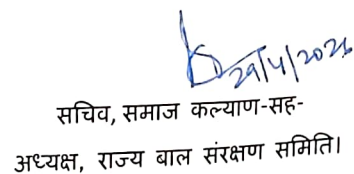 29/4/2026
सचिव, समाज कल्याण-सह-
अध्यक्ष, राज्य बाल संरक्षण समिति।